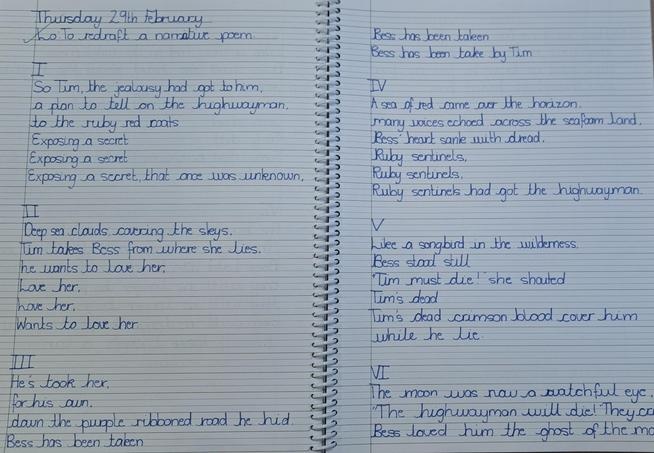 Thursday 29th February
Lo To redraft a narrative poem
I
So Tim, the jealousy had got to him,
a plan to tell on the highwayman,
to the ruby red coats
Exposing a secret
Exposing a secret
Exposing a secret, that once was unknown,
II
Deep sea clouds covering the skeys.
Tim takes Bess from where she lies.
he wants to love her,
Love her,
Love her,
Wants to love her
III
He's took her,
for his own.
down the purple ribboned road he hid.
Bess has been taken
Bess has been taken
Bess has been take by Tim
IV
A sea of red came over the horizon.
many voices echoed across the seafoam land.
Bess' heart sank with dread.
Ruby sentinels,
Ruby sentinels,
Ruby sentinels had got the highwayman.
V
Like a songbird in the wilderness.
Bess stood still
"Tim must die!" she shouted
Tim's dead
Tim's dead crimson blood cover him
while he lie.
VI
The moon was now a watchful eye.
"The highwayman will die! They
Bess loved him the ghost of the